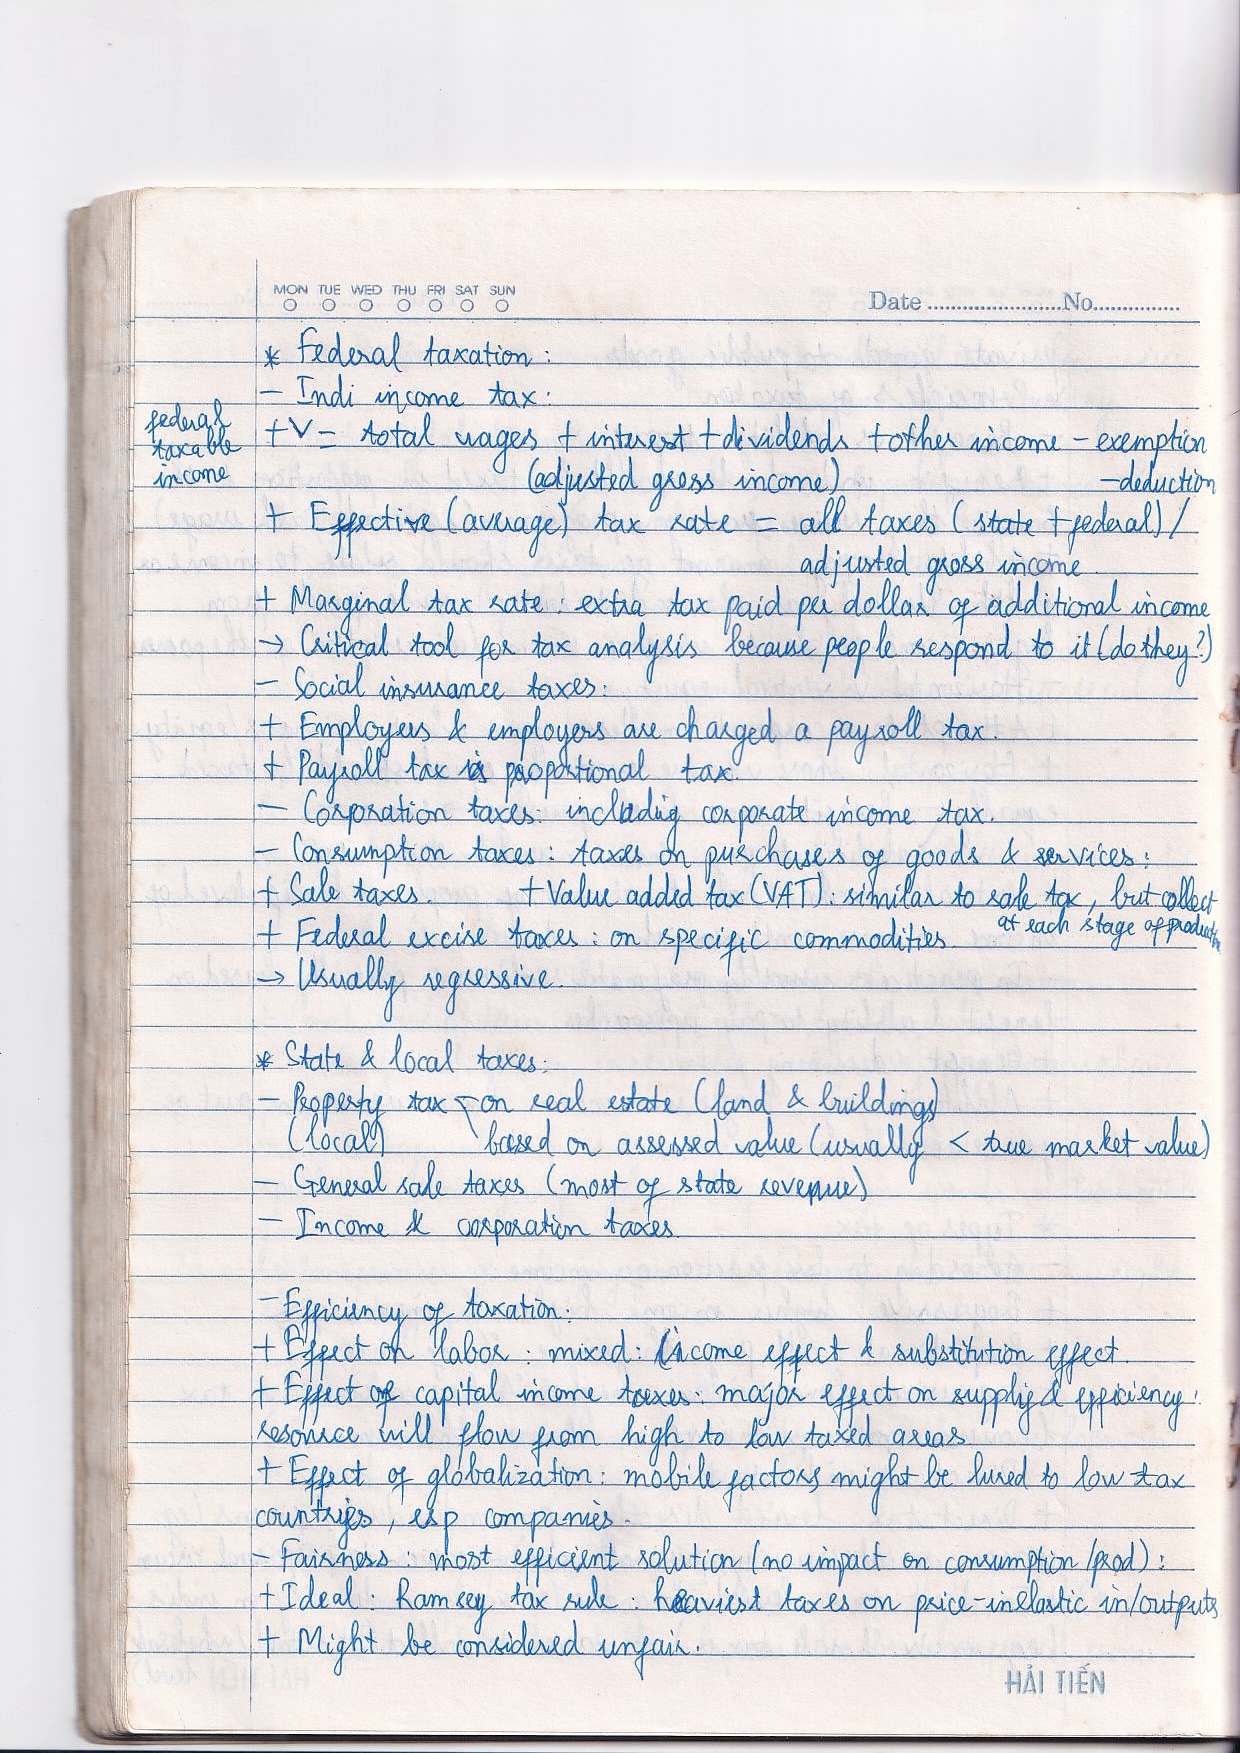 MON TUE WED THU FRI SAT SUN
Date ........................No................
* Federal taxation:
– Indi income tax:
federal taxable income
+ V = total wages + interest + dividends + other income – exemption
(adjusted gross income) – deduction
+ Effective (average) tax rate = all taxes (state + federal) /
adjusted gross income
+ Marginal tax rate: extra tax paid per dollar of additional income
→ Critical tool for tax analysis because people respond to it (do they?)
– Social insurance taxes:
+ Employers & employers are charged a payroll tax.
+ Payroll tax is proportional tax.
– Corporation taxes: including corporate income tax.
– Consumption taxes: taxes on purchases of goods & services:
+ Sale taxes. + Value added tax (VAT): similar to sale tax, but collect
at each stage of production
+ Federal excise taxes: on specific commodities.
→ Usually regressive.
* State & local taxes:
– Property tax on real estate (land & buildings)
(local) based on assessed value (usually < true market value)
– General sale taxes (most of state revenue)
– Income & corporation taxes.
– Efficiency of taxation:
+ Effect on labor: mixed: income effect & substitution effect.
+ Effect of capital income taxes: major effect on supply & efficiency:
resource will flow from high to low taxed areas
+ Effect of globalization: mobile factors might be lured to low tax
countries, esp companies.
– Fairness: most efficient solution (no impact on consumption/prod):
+ Ideal: Ramsey tax rule: heaviest taxes on price-inelastic in/outputs
+ Might be considered unfair.
HẢI TIẾN